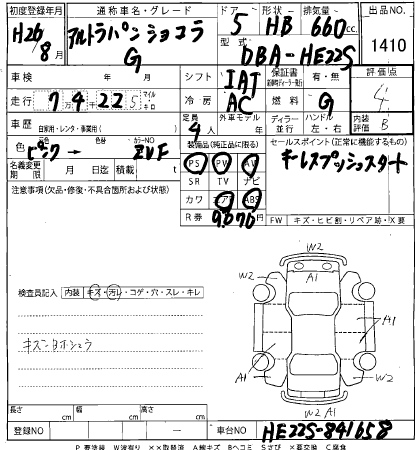 初度登録年月 通称車名・グレード ドア 形状 排気量 出品NO.
H26年 8月 アルトラパンショコラ G 5 HB 660cc 1410
型式 DBA-HE22S
車検 年 月 シフト IAT 保証書 有・無 評価点
走行 7万4千225 マイル キロ 冷房 AC 燃料 G 4
車歴 自家用・レンタ・事業用( ) 定員 4人 外車モデル 年 ディーラー 並行 ハンドル 左・右 内装評価 B
色 ピンク → 色替 カラーNO ZVF 装備品(純正品に限る) セールスポイント(正常に機能するもの)
名義変更期限 月 日迄 積載 t PS PW AW キーレスプッシュスタート
注意事項(欠品・修復・不具合箇所および状態) SR TV ナビ
カワ エアB ABS
R券 9,070 FW キズ・ヒビ割・リペア跡・X要
検査員記入 内装 キズ・汚レ・コゲ・穴・スレ・キレ
W2
W2 A1 W2
キズ ヨゴレ
A1
A1 W2
W2 A1
長さ cm 幅 cm 高さ cm
登録NO ー 車台NO HE22S-841658
P 要塗装 W波有り ××取替済 A線キズ Bヘコミ Sさび X要交換 C腐食